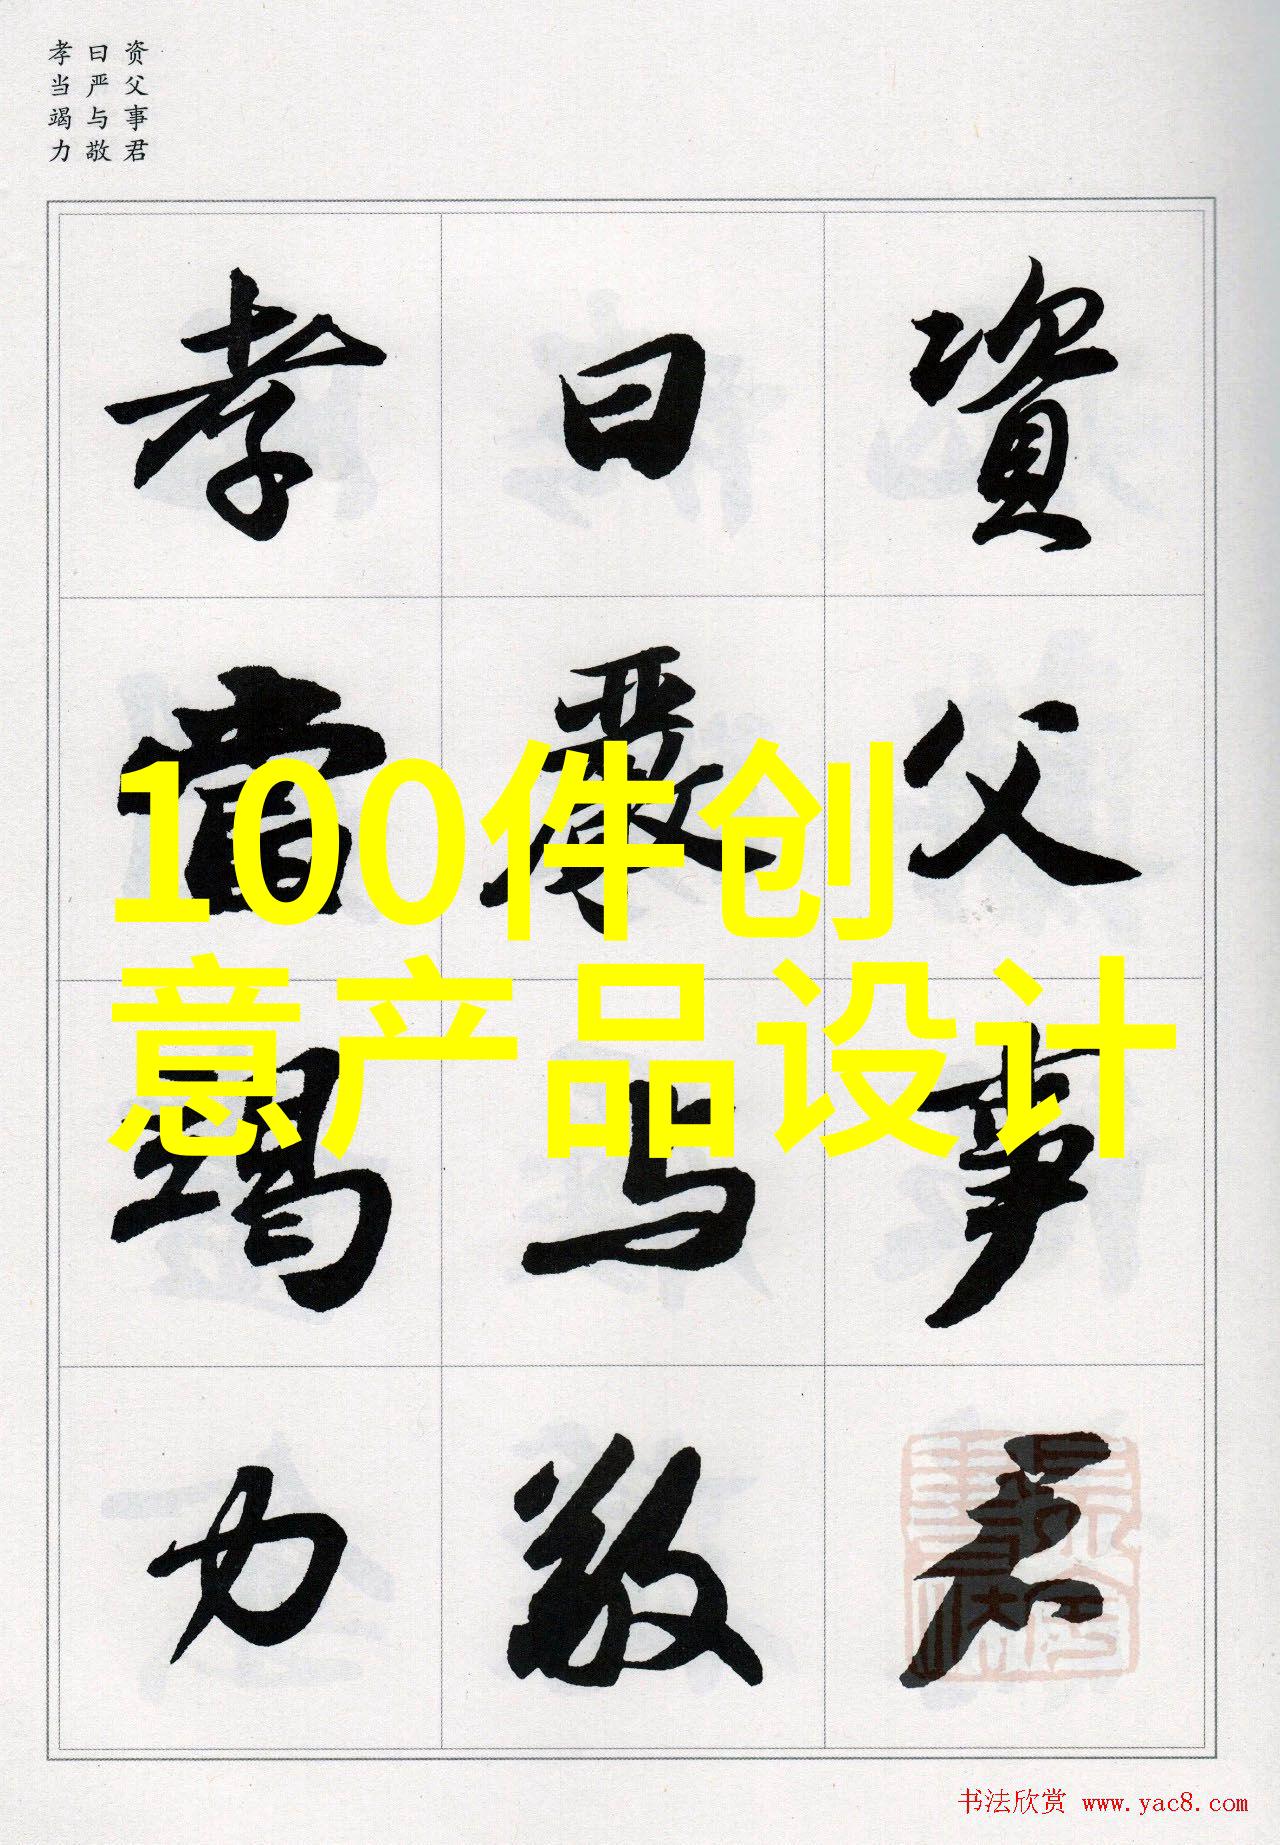 资父事君
曰严与敬
孝当竭力
資父事君
曰嚴与敬
孝當竭力
100件创
意产品设计
书法欣赏 www.yac8.com